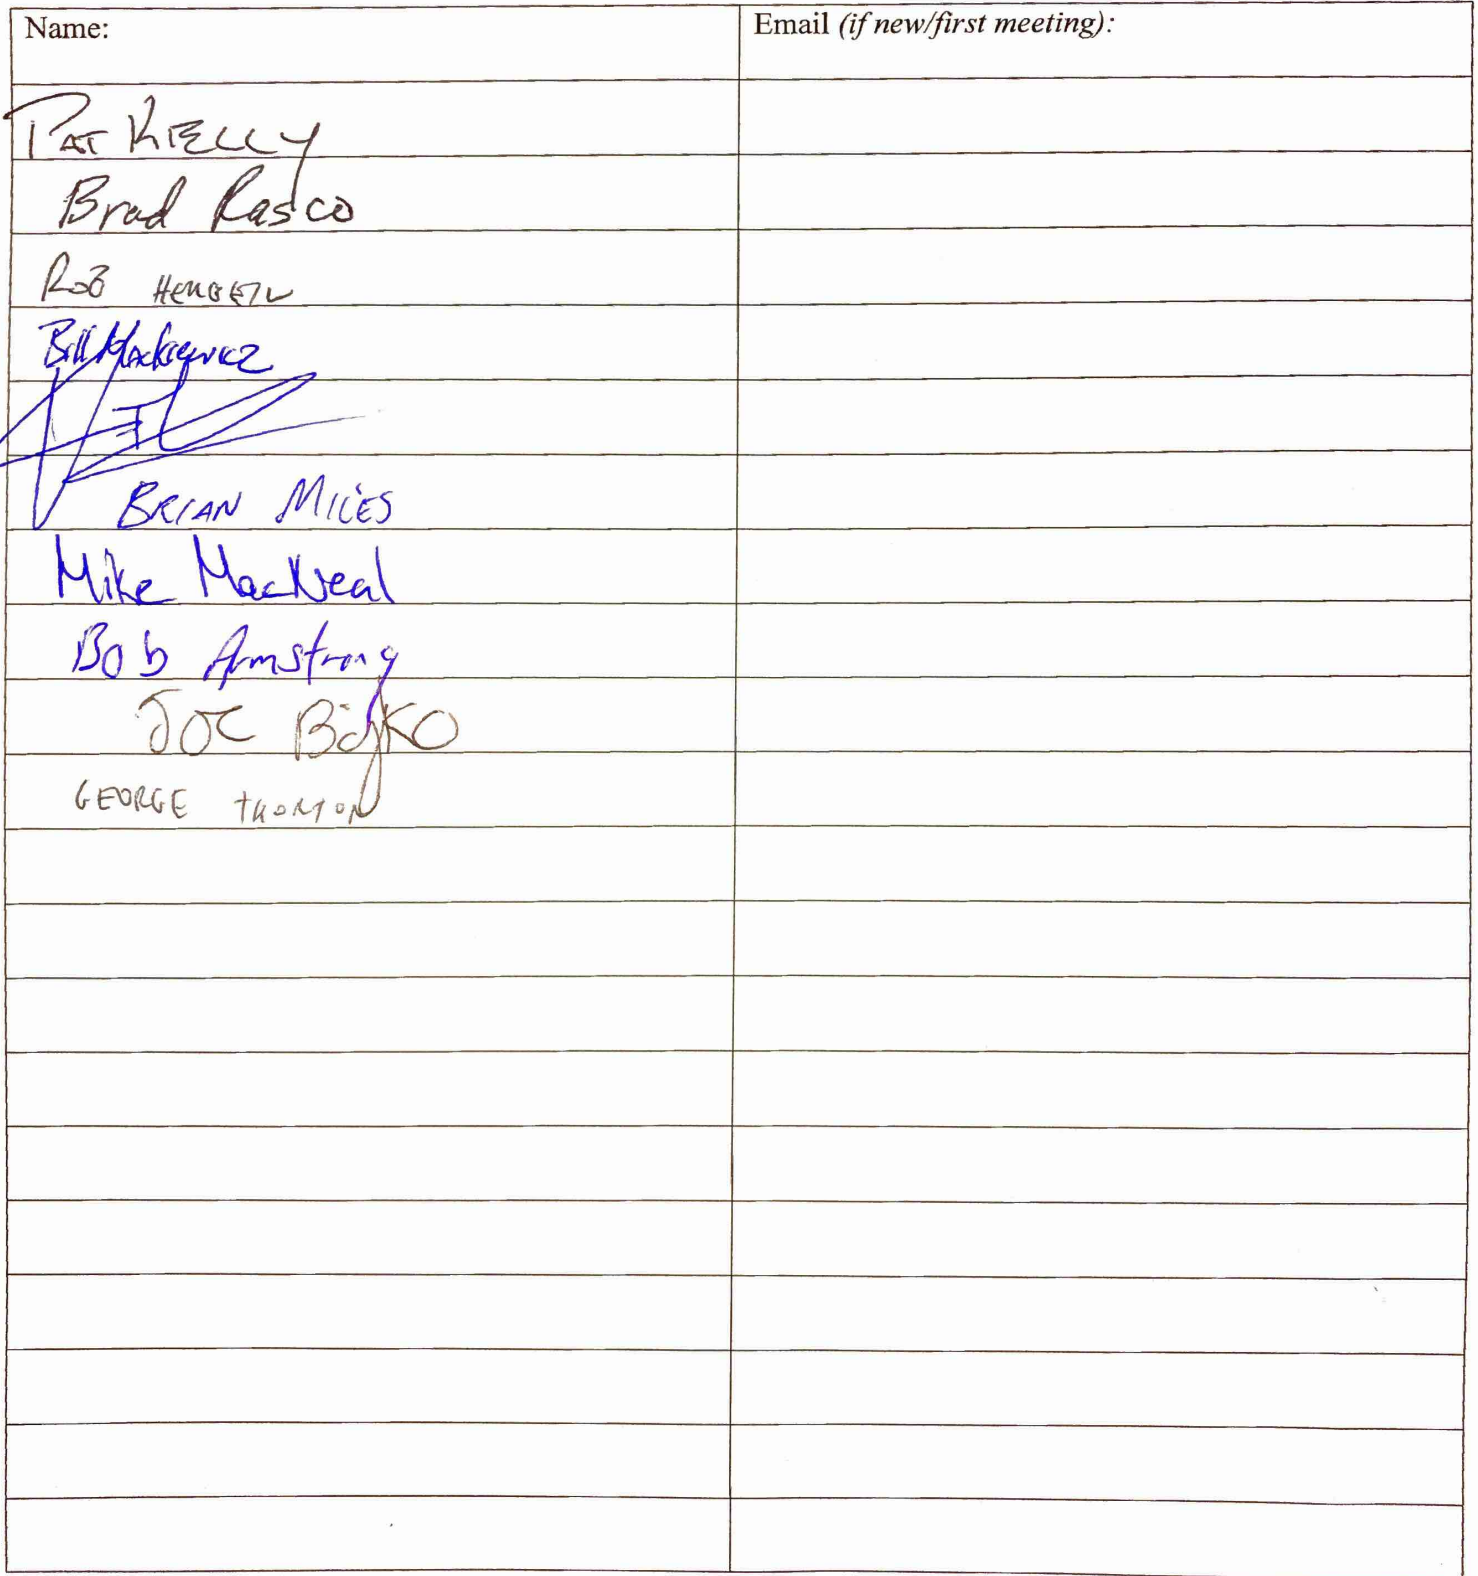 Name:
Email (if new/first meeting):
PAT KIELLY
Brad Rasco
ROB
Bill Mackiewicz
BRIAN MILES
Mike MacNeal
Bob Armstrong
JOE
GEORGE THORTON